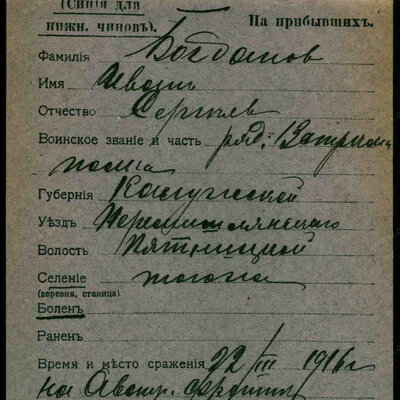 (Синія для
нижн. чиновъ).
На прибывшихъ.
Фамилія Богданов
Имя Иван
Отчество Сергѣев
Воинское званіе и часть ряд.
полка
Губернія Калужской
Уѣздъ Перемышлянскаго
Волость Пятницкой
Селеніе
(деревня, станица)
Боленъ
Раненъ
Время и мѣсто сраженія 22/III 1916 г
на Австр.